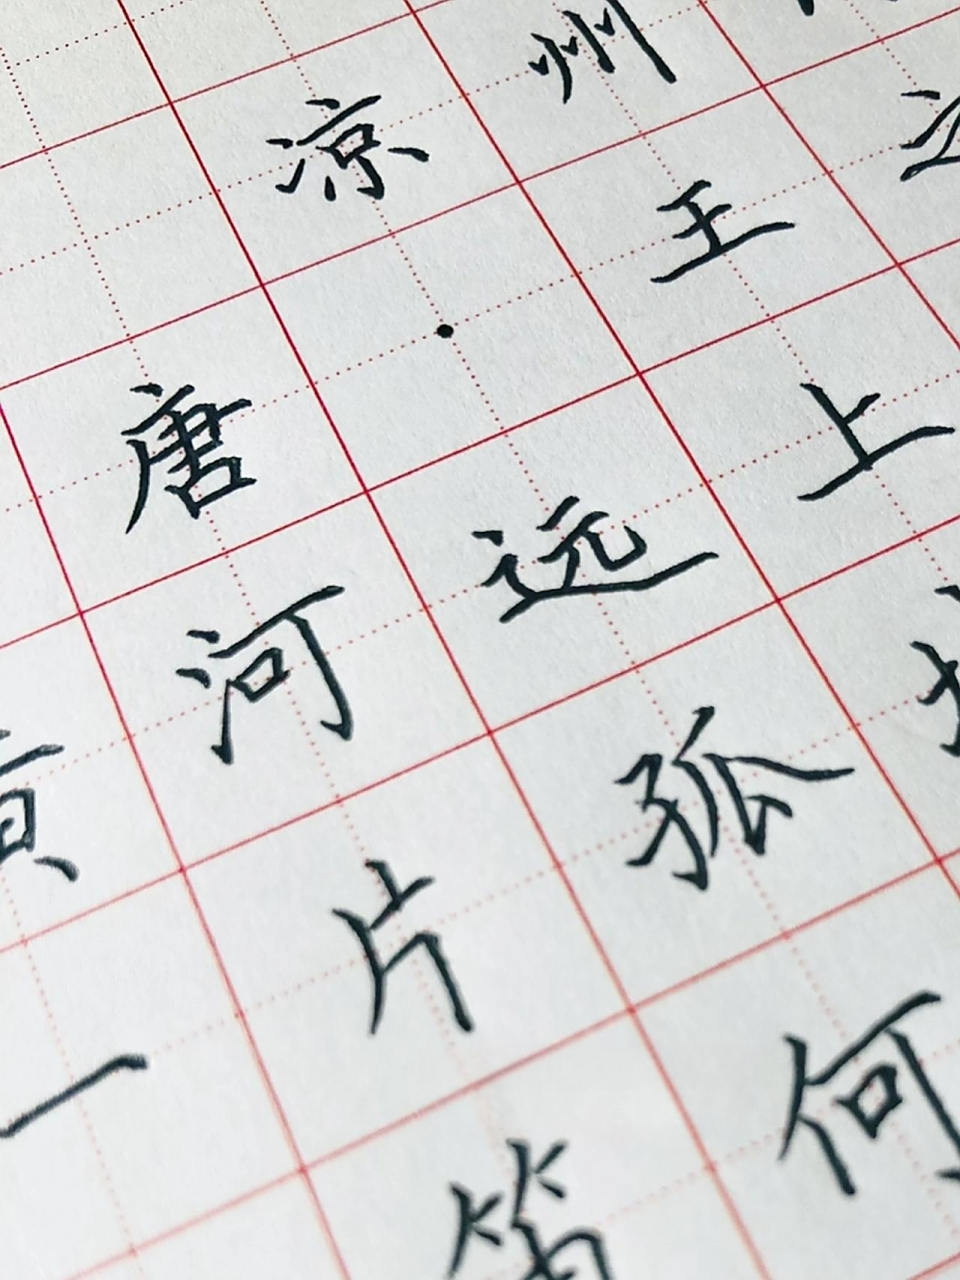 凉州
唐·王之
黄河远上
一片孤
笛何